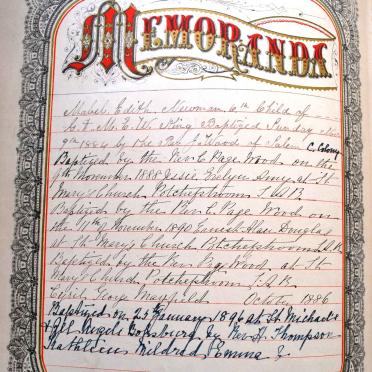 MEMORANDA
Mabel Edith Newman 6th Child of
& M. E. W. King Baptized Sunday Nov
9th 1884 by the Rev Wood of Salem C. Colony
Baptized by the Rev C. Page Wood on the
9th November 1888 Jessie Evelyn Amy at St
Mary's Church Potchefstroom S.A.R.
Baptized by the Rev C. Page Wood on
the 11th of November 1890 Ernest Alan Douglas
at St Mary's Church Potchefstroom S.A.R.
Baptized by the Rev Page Wood at St
Mary's Church Potchefstroom S.A.R.
Cyril George Mayfield October 1886
Baptized on 25 January 1896 at St Michaels
& All Angels Boksburg by Rev H. Thompson
Kathleen Mildred Emma